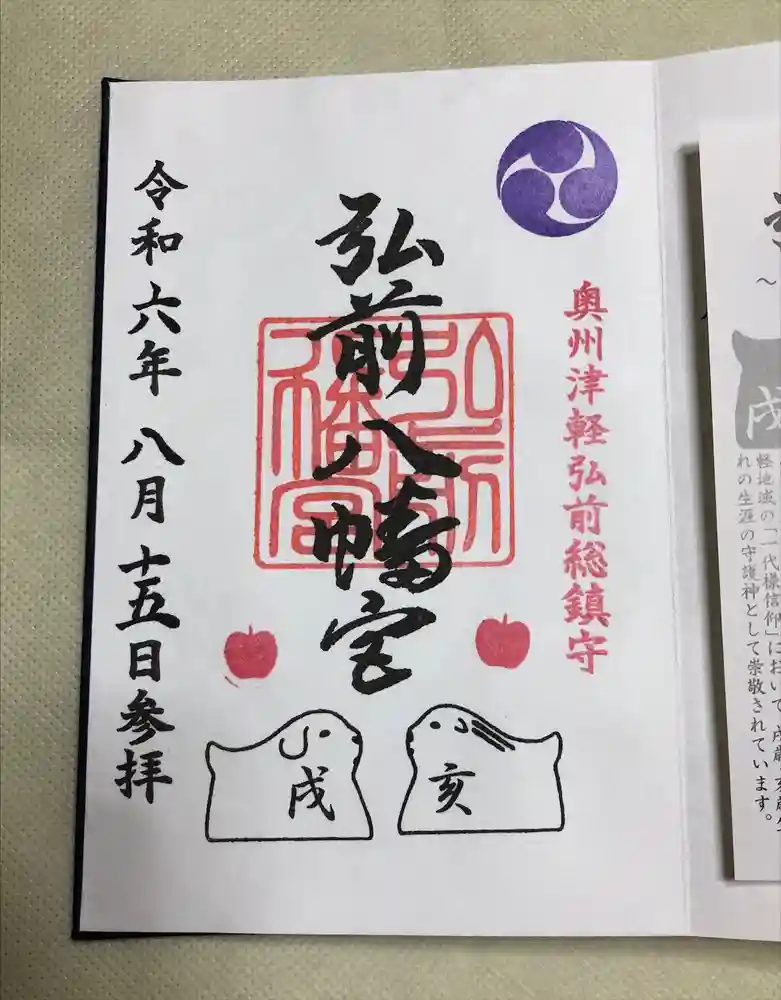 奥州津軽弘前総鎮守
弘前八幡宮
弘前八幡宮
令和六年 八月 十五日参拝
亥
戌
戌
軽地域の「一代様信仰」において、戌歳、亥歳
れの生涯の守護神として崇敬されています。